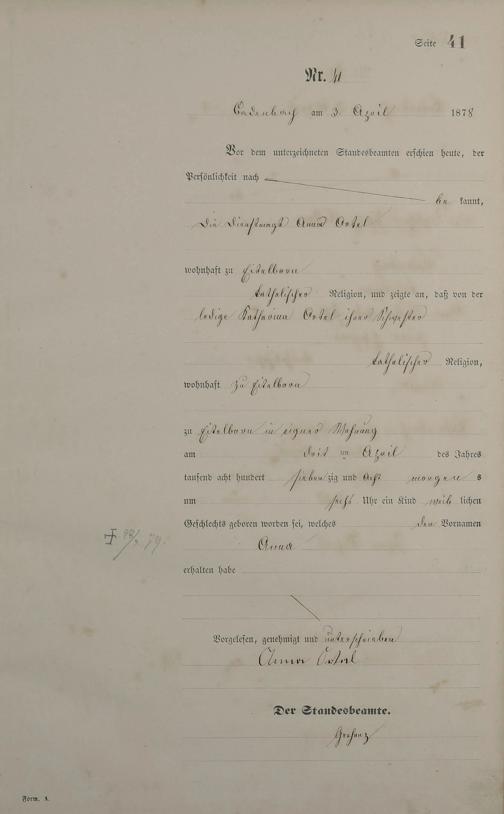 Seite 41
Nr. 41
Cadenbach am 3 April 1878
Vor dem unterzeichneten Standesbeamten erschien heute, der
Persönlichkeit nach
be kannt,
die Dienstmagd Anna Ortel
wohnhaft zu Eitelborn
katholischer Religion, und zeigte an, daß von der
ledige Katharina Ortel ihrer Schwester
katholischer Religion,
wohnhaft zu Eitelborn
zu Eitelborn in eigner Wohnung
am ten April des Jahres
tausend acht hundert sieben zig und acht morgen s
um sechs Uhr ein Kind weib lichen
Geschlechts geboren worden sei, welches den Vornamen
Anna
erhalten habe
Vorgelesen, genehmigt und unterschrieben
Anna Ortel
Der Standesbeamte.
Form. A.